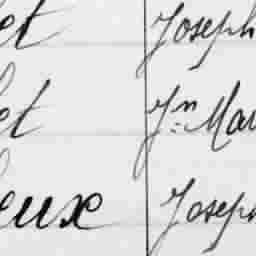 et Joseph
let Jn: Mau
eux Joseph